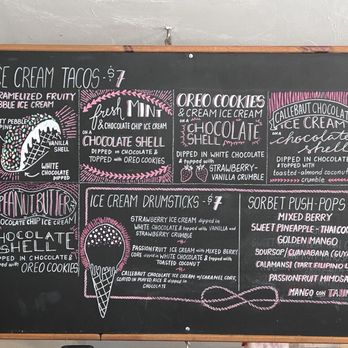 CE CREAM TACOS - $7
RAMELIZED FRUITY
BBLE ICE CREAM
TY PEBBLE
PING
VANILLA
SHELL
WHITE
CHOCOLATE
DIPPED
fresh MINT
& CHOCOLATE CHIP ICE CREAM
ON A
CHOCOLATE SHELL
DIPPED IN CHOCOLATE &
TOPPED WITH OREO COOKIES
OREO COOKIES
& CREAM ICE CREAM
ON A
CHOCOLATE
SHELL
DIPPED IN WHITE CHOCOLATE &
TOPPED WITH
STRAWBERRY-
VANILLA CRUMBLE
CALLEBAUT CHOCOLAT
ICE CREAM
ON A
chocolate
shell
DIPPED IN CHOCOLATE
& TOPPED WITH
toasted-almond coconut
crumble
PEANUT BUTTER
CHOCOLATE CHIP ICE CREAM
CHOCOLATE
SHELL
DIPPED IN CHOCOLATE &
TOPPED WITH
OREO COOKIES
ICE CREAM DRUMSTICKS - $7
STRAWBERRY ICE CREAM dipped in
WHITE CHOCOLATE & topped with VANILLA and
STRAWBERRY CRUMBLE
PASSIONFRUIT ICE CREAM with MIXED BERRY
CORE dipped in WHITE CHOCOLATE & topped with
TOASTED COCONUT
CALLEBAUT CHOCOLATE ICE CREAM w/CARAMEL CORE,
COATED IN PUFFED RICE & dipped in
CHOCOLATE
SORBET PUSH-POPS
MIXED BERRY
SWEET PINEAPPLE - THAI COC
GOLDEN MANGO
SOURSOP/GUANABANA (GUY
CALAMANSI (TART FILIPINO L
PASSIONFRUIT MIMOSA
MANGO CON TAJIN